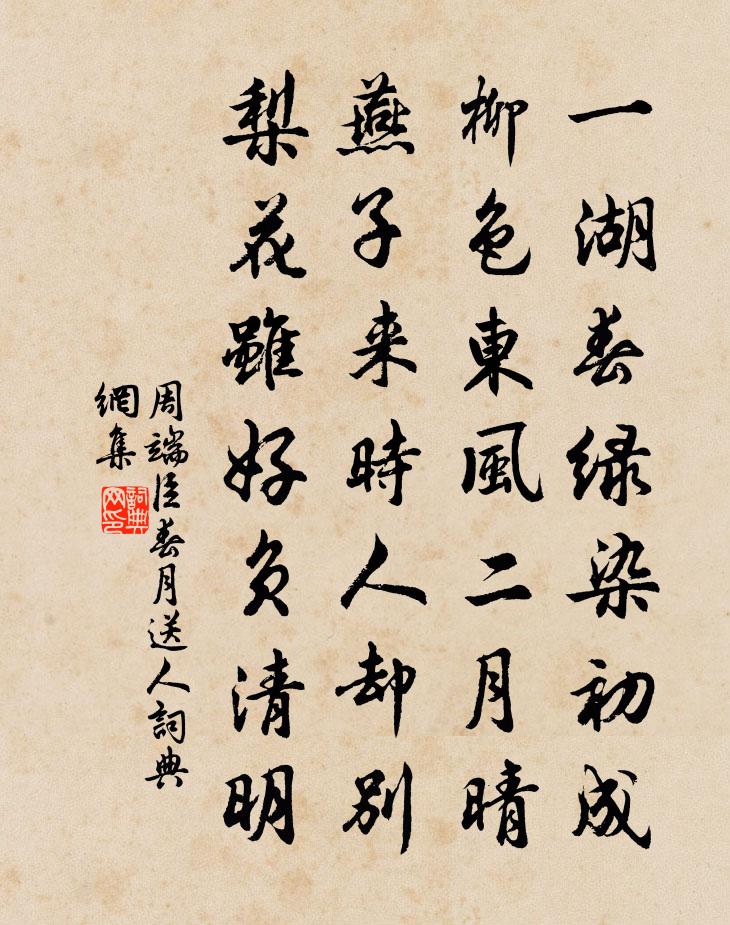 一湖春绿染初成
柳色東風二月晴
燕子来時人却別
梨花雖好負清明
周端臣春月送人詞典
網集
詞典
网印